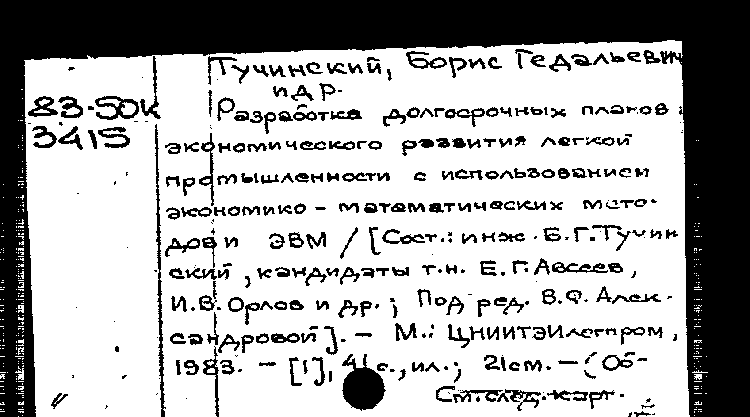 Тучинский, Борис Гедальевич
и др.
83-50к
3415
Разработка долгосрочных планов
экономического развития легкой
промышленности с использованием
экономико-математических мето-
дов и ЭВМ / [Сост.: инж. Б.Г. Тучин
ский, кандидаты т.н. Е.Г. Авсеев,
И.В. Орлов и др.; Под ред. В.Ф. Алек-
сандровой]. - М.: ЦНИИТЭИлегпром,
1983. - [1], 41 с., ил.; 21 см. - (Об-
См. след. карт.